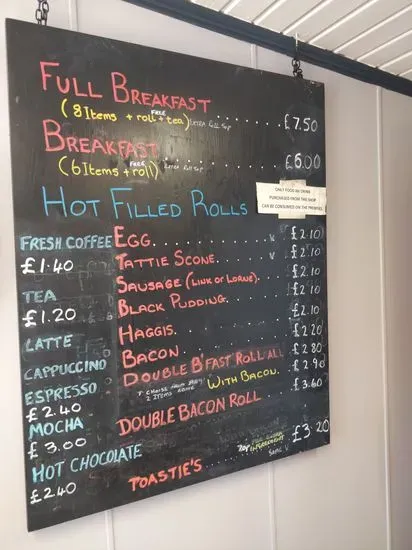 FULL BREAKFAST
(8 Items + roll + tea) FREE EXTRA Roll 50p £7.50
BREAKFAST
(6 Items + roll) FREE EXTRA Roll 50p £6.00
HOT FILLED ROLLS
ONLY FOOD AND DRINK
PURCHASED FROM THIS SHOP
CAN BE CONSUMED ON THE PREMISES
FRESH COFFEE
£1.40
TEA
£1.20
LATTE
CAPPUCCINO
ESPRESSO
£2.40
MOCHA
£3.00
HOT CHOCOLATE
£2.40
EGG V £2.10
TATTIE SCONE V £2.10
SAUSAGE (LINK OR LORNE) £2.10
BLACK PUDDING £2.10
HAGGIS £2.20
BACON £2.80
DOUBLE B'FAST ROLL ALL £2.90
2 ITEMS ABOVE WITH BACON £3.60
DOUBLE BACON ROLL
TOASTIE'S INGREDIENT £3.20